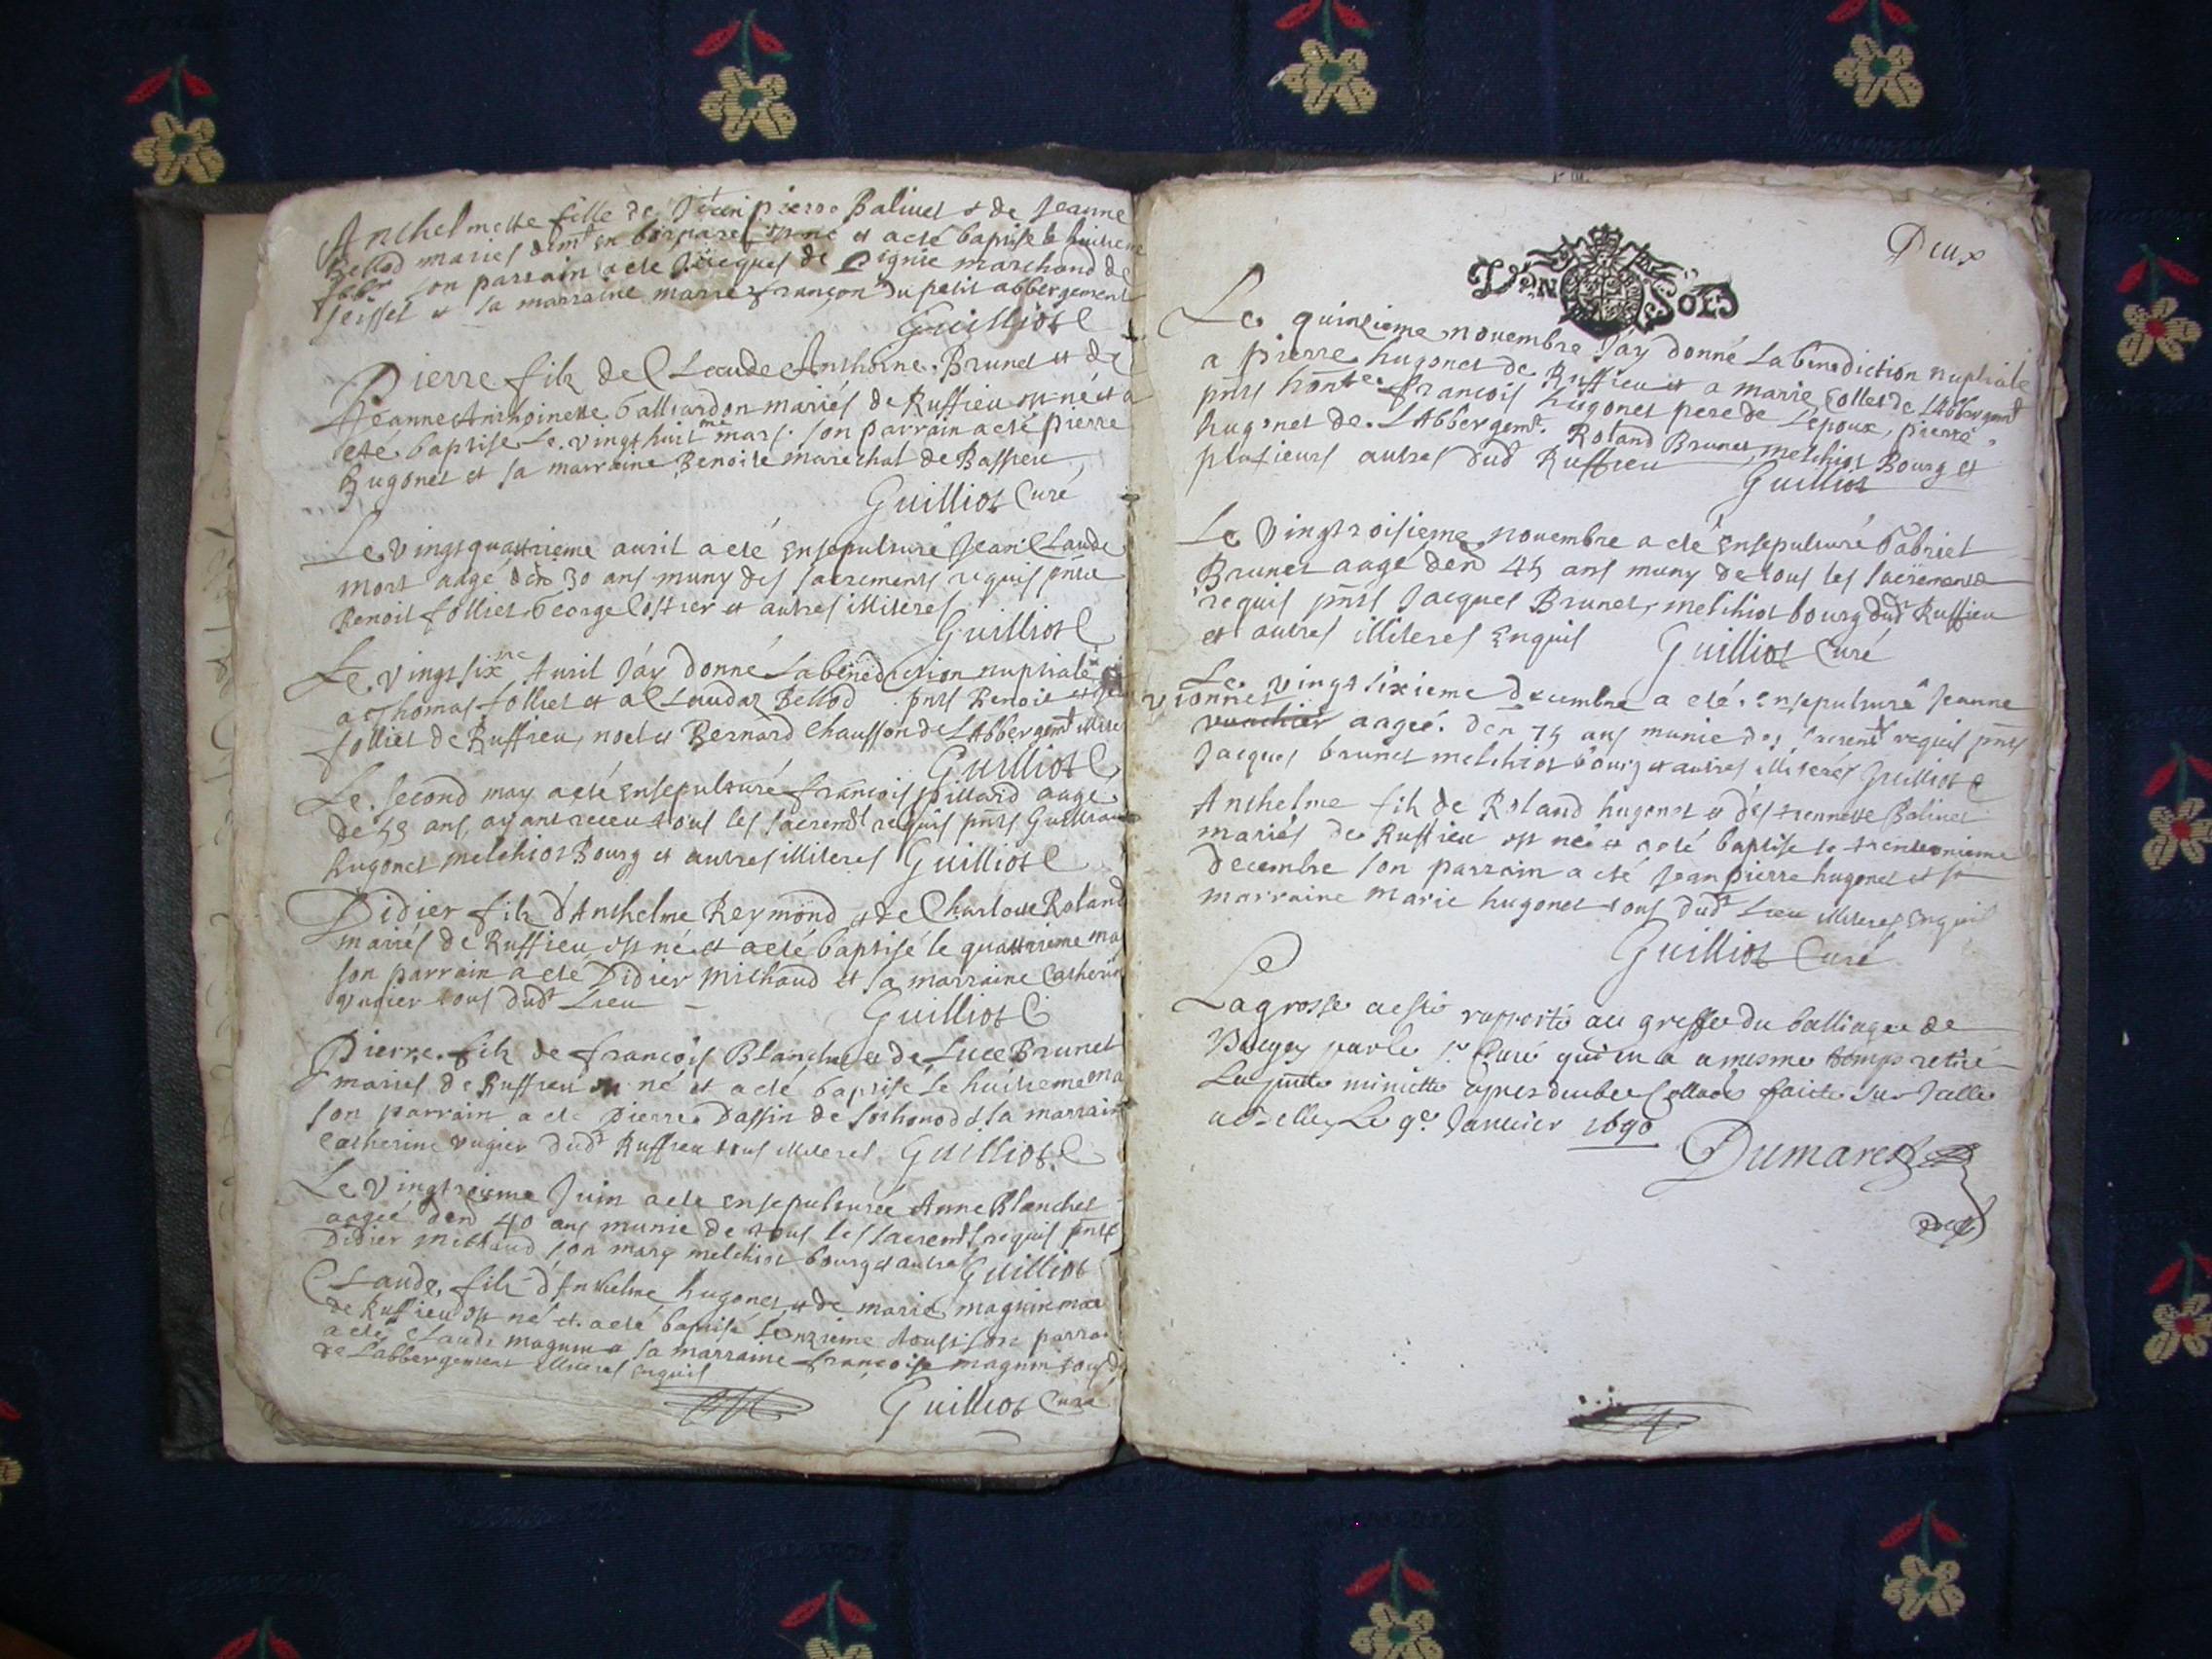 Anthelmette fille de Jean pierre Balivet & de Jeanne
Bellod mariés est né et a eté baptise le huitieme
son parrain a eté Jacques de marchand de
seissel & sa marraine marie françon du petit abbergement
Guilliot C
Pierre filz de Claude Anthoine Brunet et de
Jeanne Anthoinette Galliardon mariés de Ruffieu est né et a
eté baptise le vingt huitme mars son parrain a eté pierre
hugonet et sa marraine Benoite marechal de Bassieu
Guilliot Curé
Le vingt quattrieme auril a eté ensepulturé Jean Claude
mort aagé den 30 ans muny des sacrements requis pnts
Benoit folliet George Costier et autres illiteres
Guilliot C
Le vingt sixme Auril J'ay donné la benediction nuptiale
a Thomas folliet et a Claudaz Bellod pnts Benoit et
folliet de Ruffieu, noel et Bernard Chausson de l'Abbergemt
Guilliot C
Le second may a eté ensepulturé françois pillard aagé
de ans, ayant receu tous les sacremts requis pnts
hugonet melchiot Bourg et autres illiteres Guilliot C
Didier filz d'Anthelme Reymond & de Charlotte Roland
mariés de Ruffieu est né et a eté baptisé le quattrieme ma
son parrain a eté Didier michaud et sa marraine Catherin
vugier tous dudt Lieu
Guilliot C
Pierre filz de françois Blanchet & de Luce Brunet
mariés de Ruffieu est né et a eté baptise le huitieme ma
son parrain a eté pierre Dassin de & sa marrain
Catherine vugier dudt Ruffieu tous illiteres Guilliot C
Le Juin a eté ensepulturée Anne Blanchet
aagée den 40 ans munie de tous les sacremts requis pnts
Didier michaud son mary melchiot bourg & autres Guilliot
Claude filz d'Anthelme hugonet & de marie magnin mar
de Ruffieu est né et a eté baptisé l'onzieme Aoust son parra
a eté Claude magnin & sa marraine françoise magnin tous d
de l'abbergement illiteres enquis
Guilliot Curé
Deux
VN SOL
Le quinzieme nouembre J'ay donné la benediction nuptiale
a pierre hugonet de Ruffieu et a marie Collet de l'Abbergemt
pnts honte francois hugonet pere de l'epoux, pierre
hugonet de l'Abbergemt. Roland Brunet, melchiot Bourg et
plusieurs autres dudt Ruffieu
Guilliot
Le vingtroisieme nouembre a eté ensepulturé Gabriel
Brunet aagé den 45 ans muny de tous les sacrements
requis pnts Jacques Brunet, melchiot bourg dudt Ruffieu
et autres illiteres enquis Guilliot Curé
Le vingt sixieme decembre a eté ensepulturé Jeanne
vionnet
aagée den 75 ans munie des sacremt requis pnts
Jacques brunet melchiot bourg et autres illiteres Guilliot C
Anthelme filz de Roland hugonet & d'estiennette Balivet
mariés de Ruffieu est né & a eté baptise le trenteunieme
decembre son parrain a eté Jean pierre hugonet et sa
marraine marie hugonet tous dudt Lieu illiteres enquis
Guilliot Curé
La grosse a esté rapporté au greffe du balliage de
Bugey par le sr. Curé qui en a a mesme temps retiré
La pnte minutte apres deube Collaon faicte sur Jcelle
Le 9e. Januier 1690
Dumarest